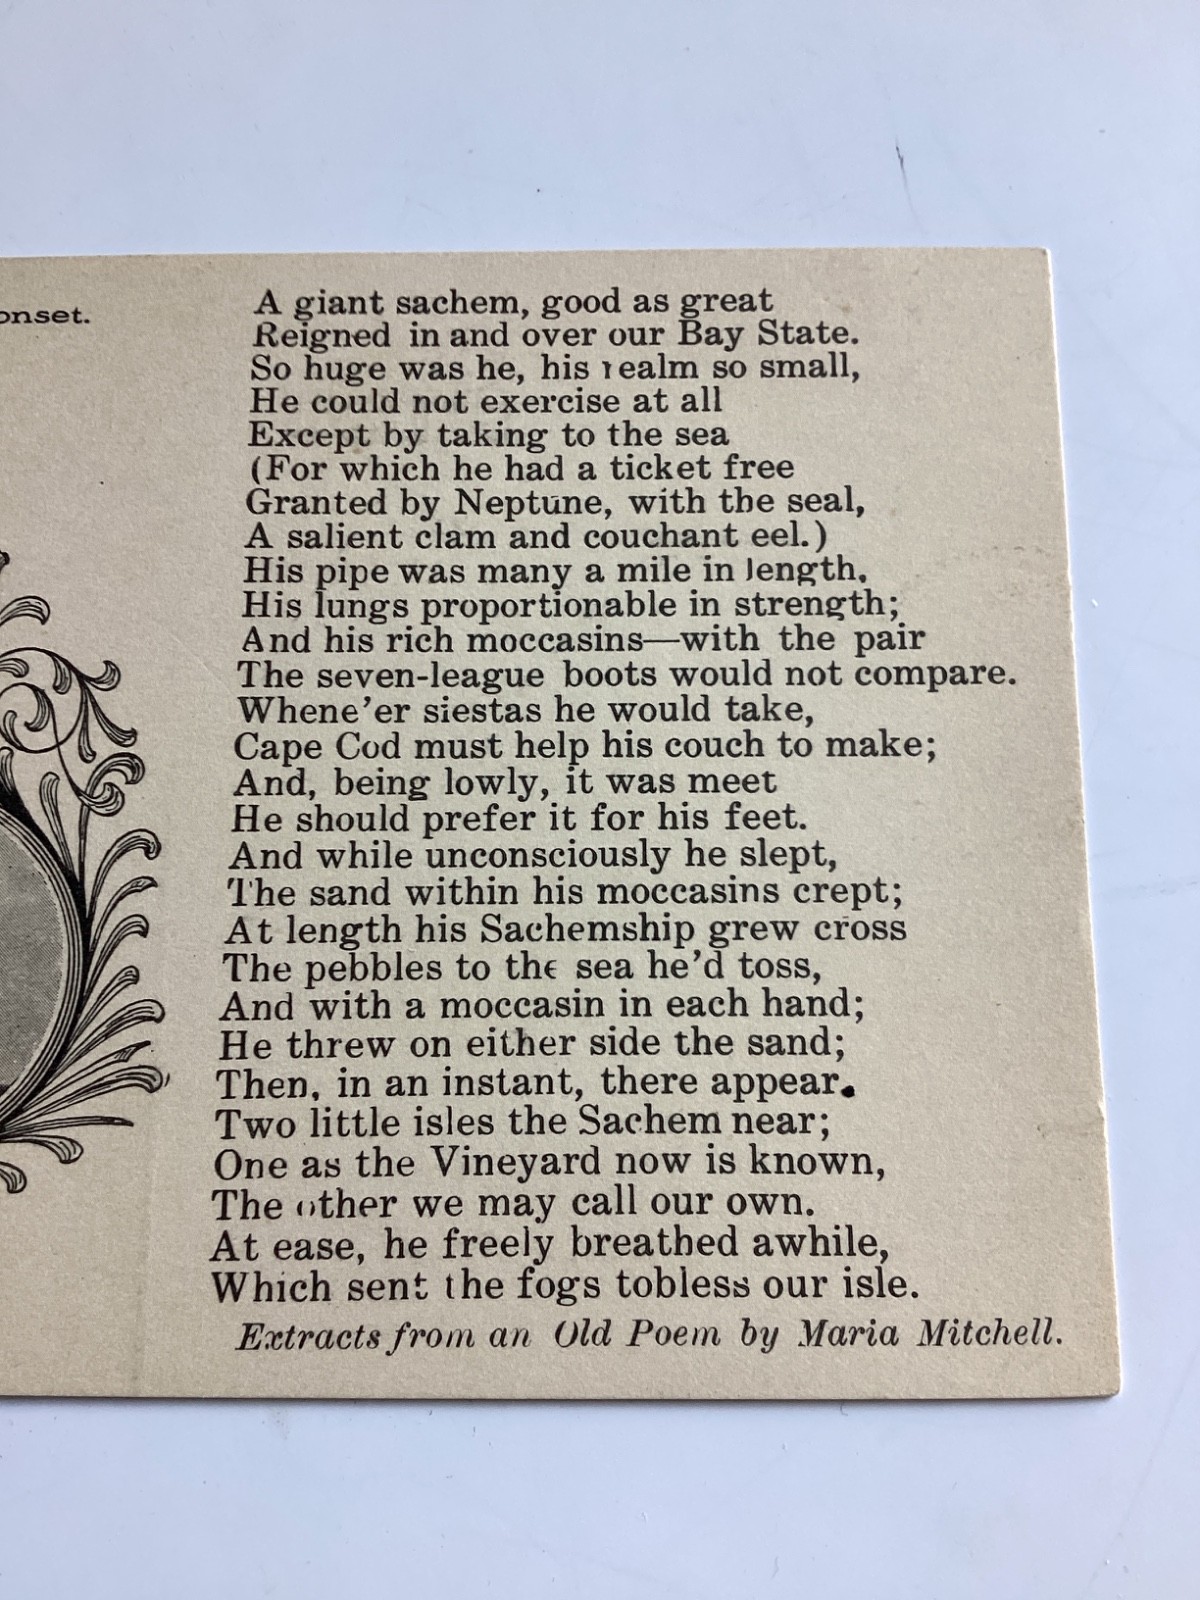 onset.
A giant sachem, good as great
Reigned in and over our Bay State.
So huge was he, his realm so small,
He could not exercise at all
Except by taking to the sea
(For which he had a ticket free
Granted by Neptune, with the seal,
A salient clam and couchant eel.)
His pipe was many a mile in length,
His lungs proportionable in strength;
And his rich moccasins—with the pair
The seven-league boots would not compare.
Whene'er siestas he would take,
Cape Cod must help his couch to make;
And, being lowly, it was meet
He should prefer it for his feet.
And while unconsciously he slept,
The sand within his moccasins crept;
At length his Sachemship grew cross
The pebbles to the sea he'd toss,
And with a moccasin in each hand;
He threw on either side the sand;
Then, in an instant, there appear.
Two little isles the Sachem near;
One as the Vineyard now is known,
The other we may call our own.
At ease, he freely breathed awhile,
Which sent the fogs tobless our isle.
Extracts from an Old Poem by Maria Mitchell.